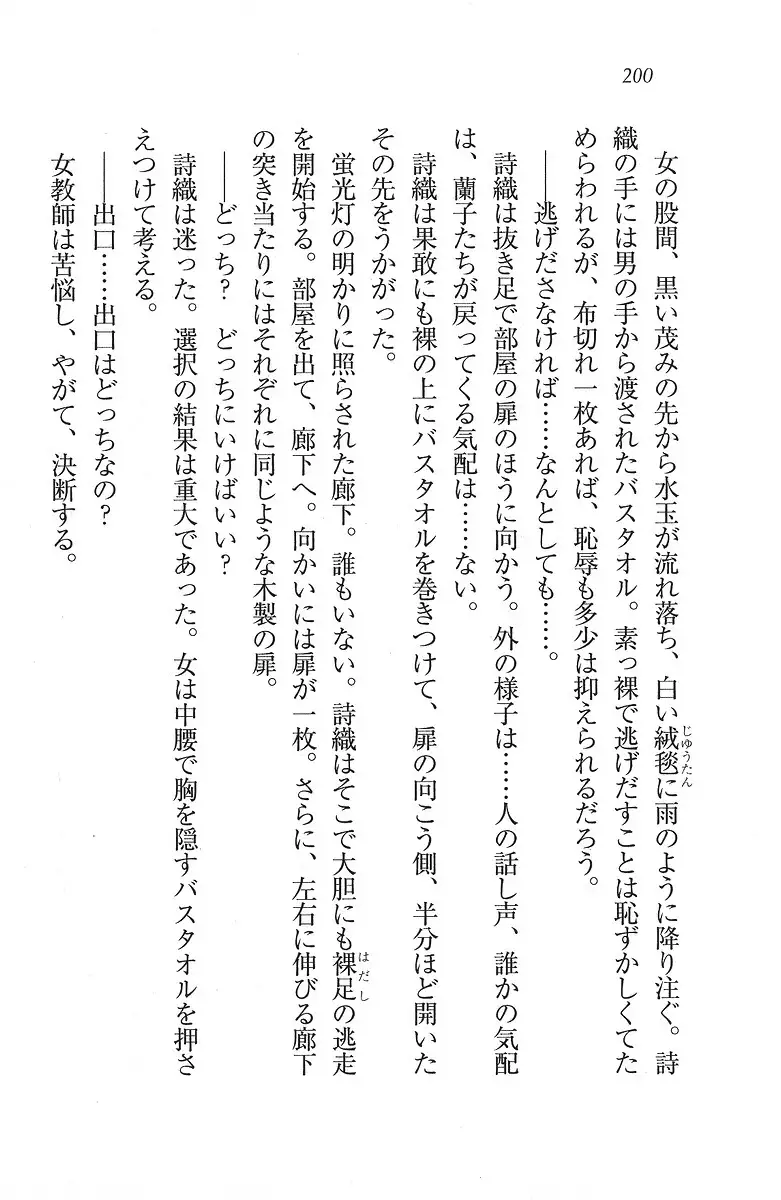 200
女の股間、黒い茂みの先から水玉が流れ落ち、白い絨毯に雨のように降り注ぐ。詩
じゆうたん
織の手には男の手から渡されたバスタオル。素っ裸で逃げだすことは恥ずかしくてた
めらわれるが、布切れ一枚あれば、恥辱も多少は抑えられるだろう。
――逃げださなければ……なんとしても……。
詩織は抜き足で部屋の扉のほうに向かう。外の様子は……人の話し声、誰かの気配
は、蘭子たちが戻ってくる気配は……ない。
詩織は果敢にも裸の上にバスタオルを巻きつけて、扉の向こう側、半分ほど開いた
その先をうかがった。
蛍光灯の明かりに照らされた廊下。誰もいない。詩織はそこで大胆にも裸足の逃走
はだし
を開始する。部屋を出て、廊下へ。向かいには扉が一枚。さらに、左右に伸びる廊下
の突き当たりにはそれぞれに同じような木製の扉。
――どっち？　どっちにいけばいい？
詩織は迷った。選択の結果は重大であった。女は中腰で胸を隠すバスタオルを押さ
えつけて考える。
――出口……出口はどっちなの？
女教師は苦悩し、やがて、決断する。